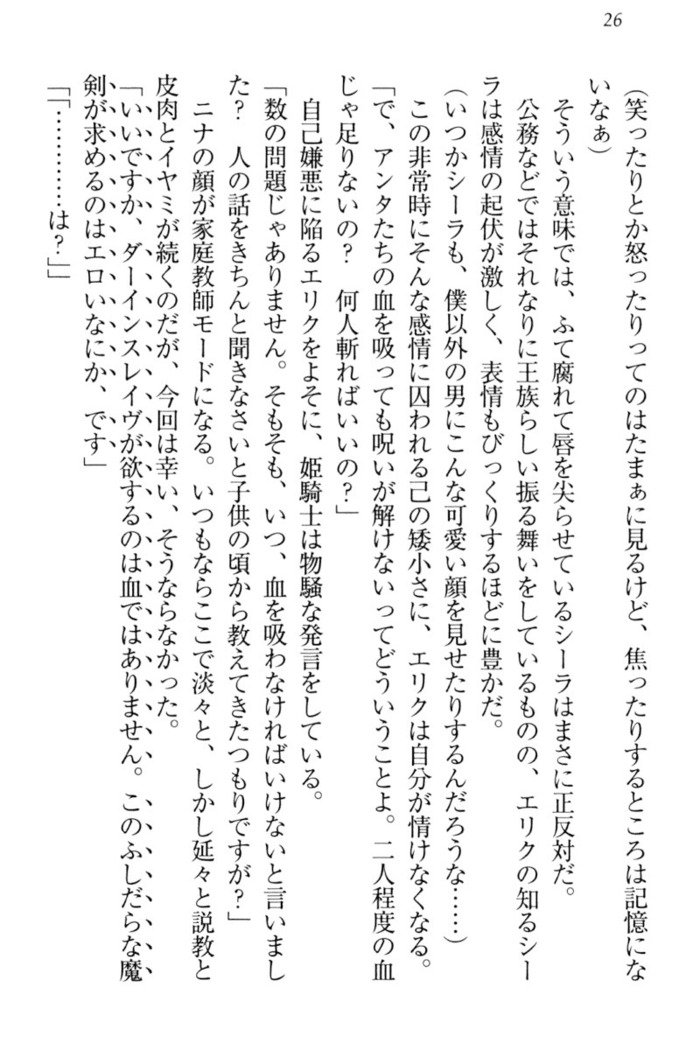 26
(笑ったりとか怒ったりってのはたまぁに見るけど、焦ったりするところは記憶にな
いなぁ)
そういう意味では、ふて腐れて唇を尖らせているシーラはまさに正反対だ。
公務などではそれなりに王族らしい振る舞いをしているものの、エリクの知るシー
ラは感情の起伏が激しく、表情もびっくりするほどに豊かだ。
(いつかシーラも、僕以外の男にこんな可愛い顔を見せたりするんだろうな……)
この非常時にそんな感情に囚われる己の矮小さに、エリクは自分が情けなくなる。
「で、アンタたちの血を吸っても呪いが解けないってどういうことよ。二人程度の血
じゃ足りないの？　何人斬ればいいの？」
自己嫌悪に陥るエリクをよそに、姫騎士は物騒な発言をしている。
「数の問題じゃありません。そもそも、いつ、血を吸わなければいけないと言いまし
た？　人の話をきちんと聞きなさいと子供の頃から教えてきたつもりですが？」
ニナの顔が家庭教師モードになる。いつもならここで淡々と、しかし延々と説教と
皮肉とイヤミが続くのだが、今回は幸い、そうならなかった。
「いいですか、ダーインスレイヴが欲するのは血ではありません。このふしだらな魔
剣が求めるのはエロいなにか、です」
「「…………は？」」